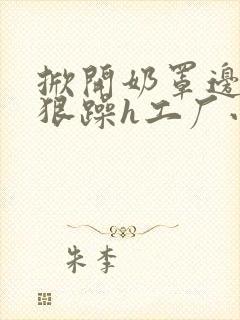 掀開奶罩邊
狠躁h工厂
朱李